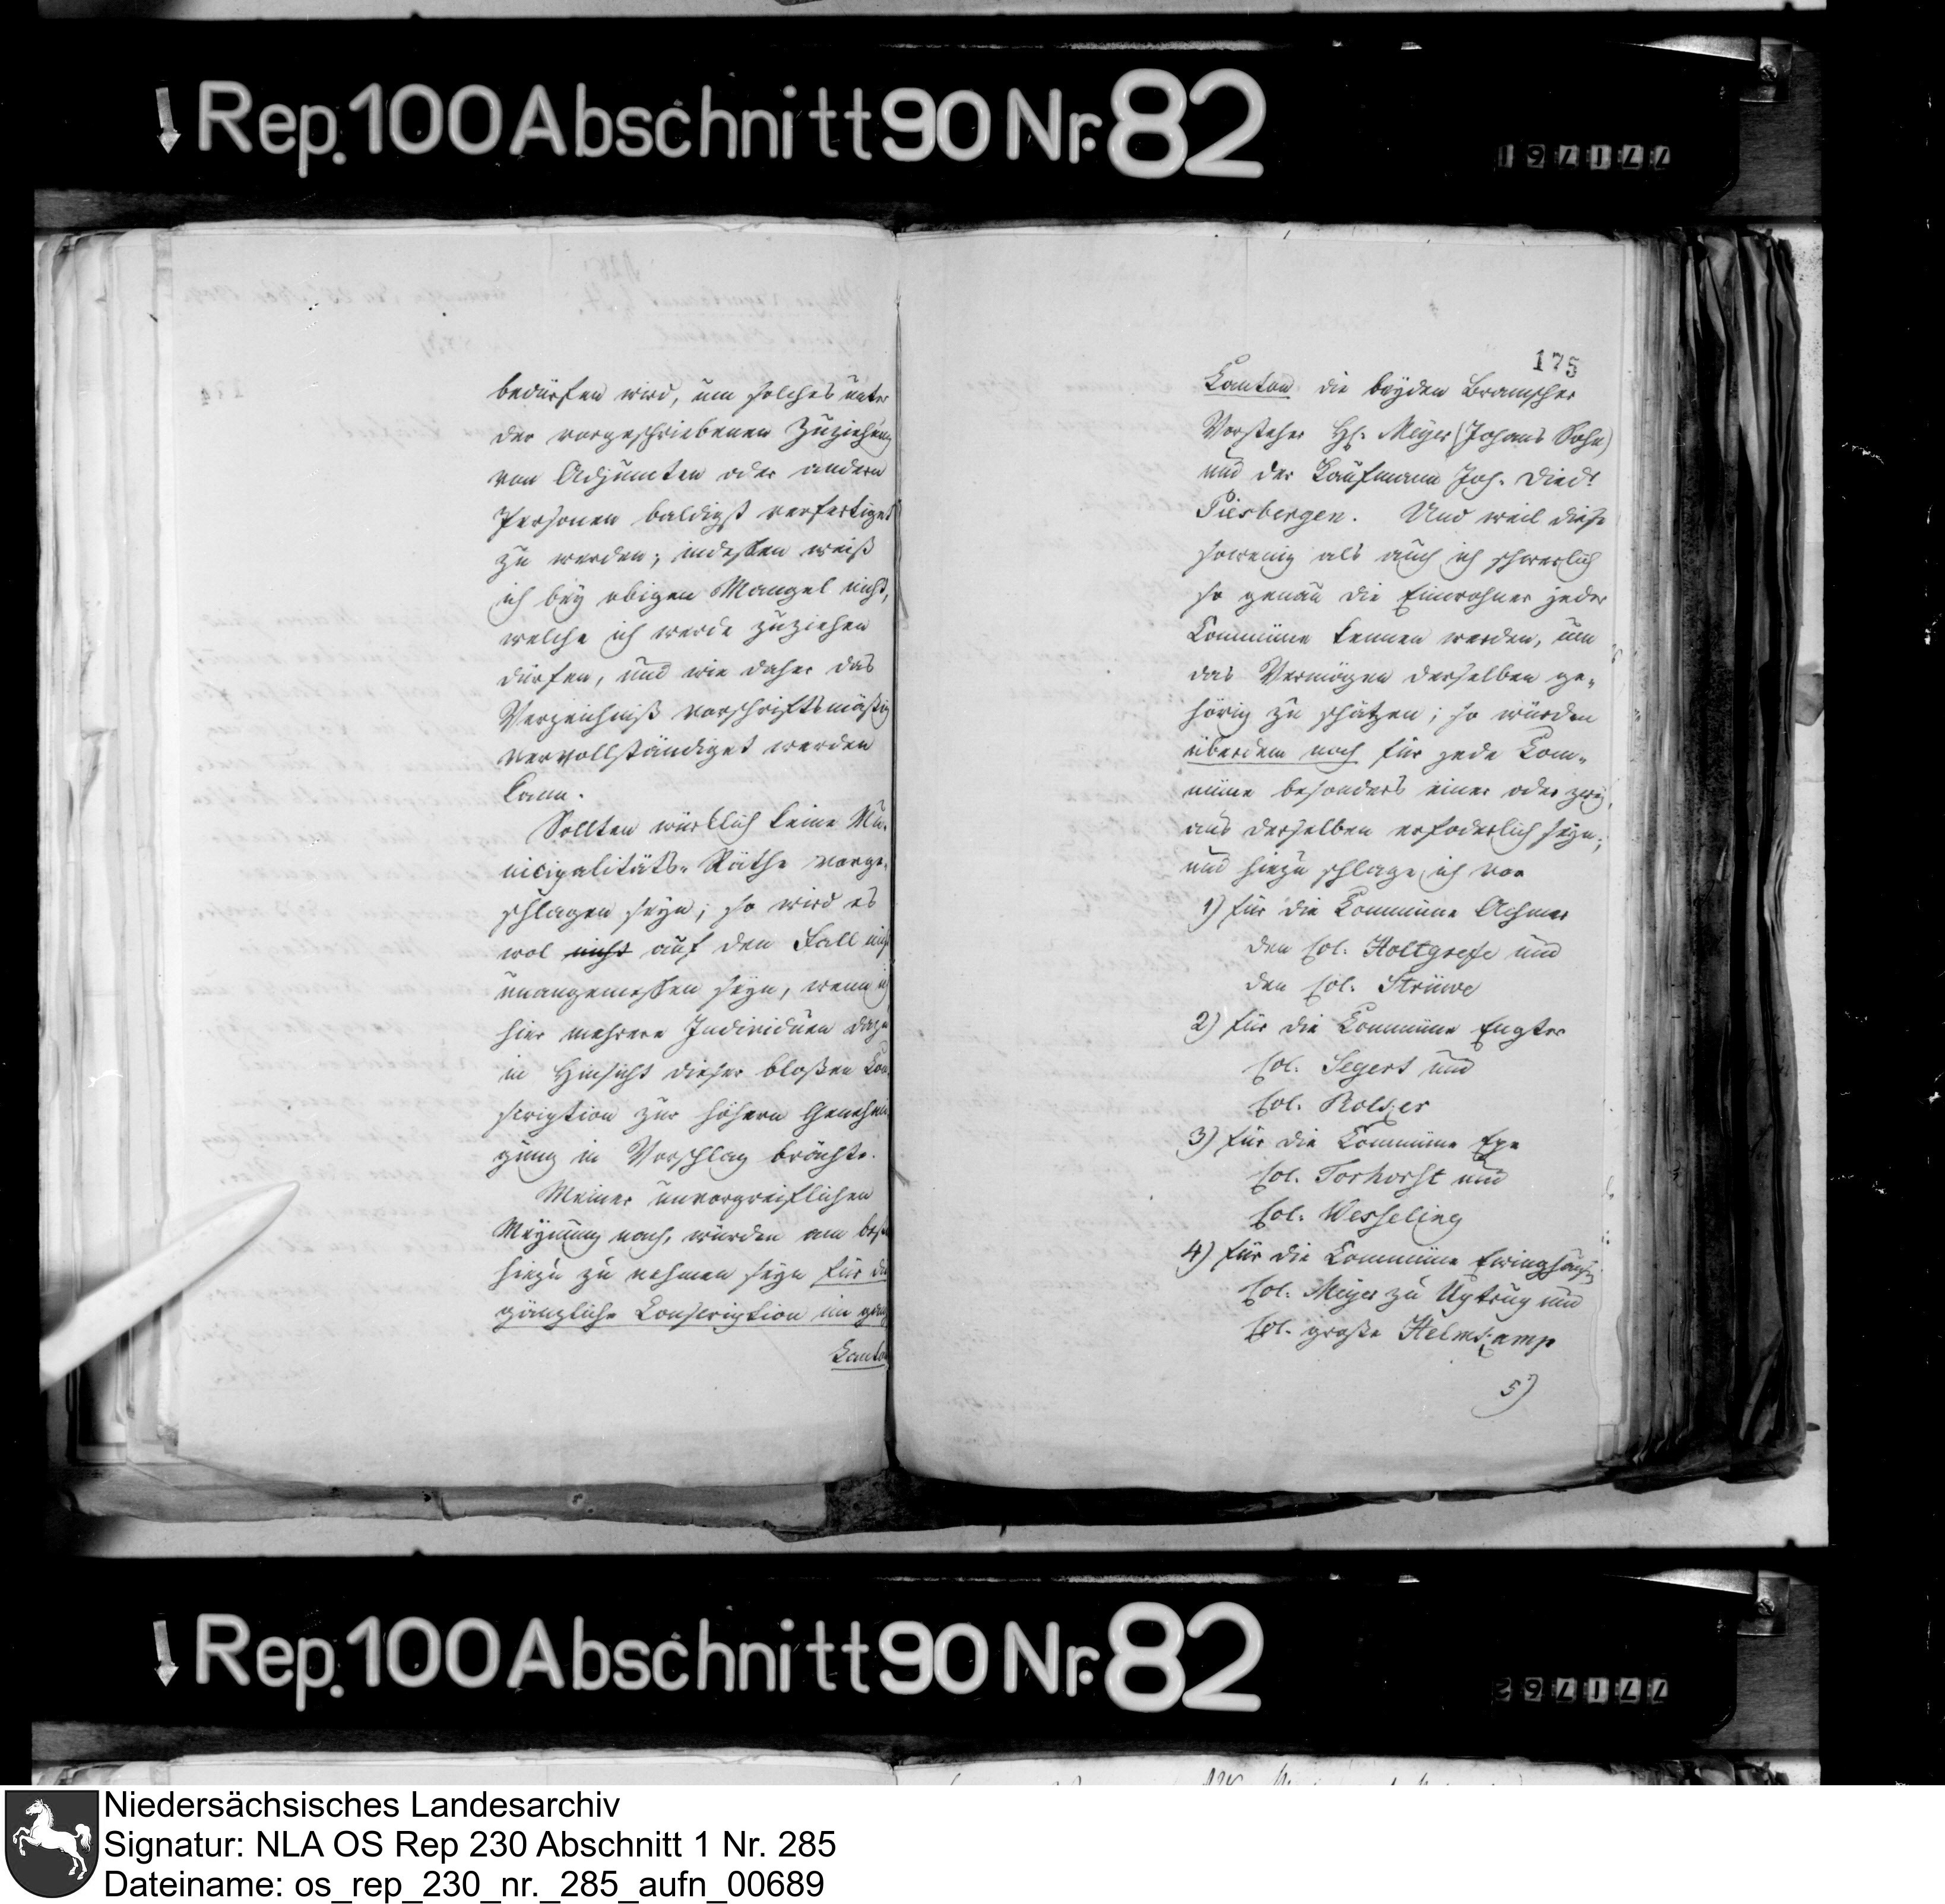 Rep. 100 Abschnitt 90 Nr. 82
197177
bedürfen wird, um solches unter
der vorgeschriebenen Zuziehung
von Adjuncten oder andern
Personen baldigst verfertiget
zu werden; indessen weiß
ich bey obigen Mangel nicht,
welche ich werde zuziehen
dürfen, und wie daher das
Verzeichniß vorschriftsmäßig
vervollständiget werden
kann.
Sollten würklich keine Mu-
nicipalitäts-Räthe vorge-
schlagen seyn; so wird es
wol nicht auf den Fall nicht
unangemessen seyn, wenn ich
hier mehrere Individuen dazu
in Hinsicht dieser bloßen Con-
scription zur höhern Genehmi-
gung in Vorschlag brächte.
Meiner unvorgreiflichen
Meynung nach, würden am besten
hiezu zu nehmen seyn für die
gänzliche Conscription im ganzen
Canton
175
Canton die beyden Bramscher
Vorsteher H. Meyer (Johans Sohn)
und der Kaufmann Joh. Died.
Piesbergen. Und weil diese
sowenig als auch ich schwerlich
so genau die Einwohner jeder
Commüne kennen werden, um
das Vermögen derselben ge-
hörig zu schätzen; so würden
überdem noch für jede Com-
müne besonders einer oder zwey
aus derselben erfoderlich seyn;
und hiezu schlage ich vor
1) für die Commüne Achmer
den Col. Holtgrefe und
den Col. Strüwe
2) für die Commüne Engter
Col. Segert und
Col. Rolker
3) für die Commüne Epe
Col. Torhorst und
Col. Wesseling
4) für die Commüne Evinghausen
Col. Meyer zu Uptrup und
Col. große Helmkamp
5)
Rep. 100 Abschnitt 90 Nr. 82
Niedersächsisches Landesarchiv
Signatur: NLA OS Rep 230 Abschnitt 1 Nr. 285
Dateiname: os_rep_230_nr._285_aufn_00689